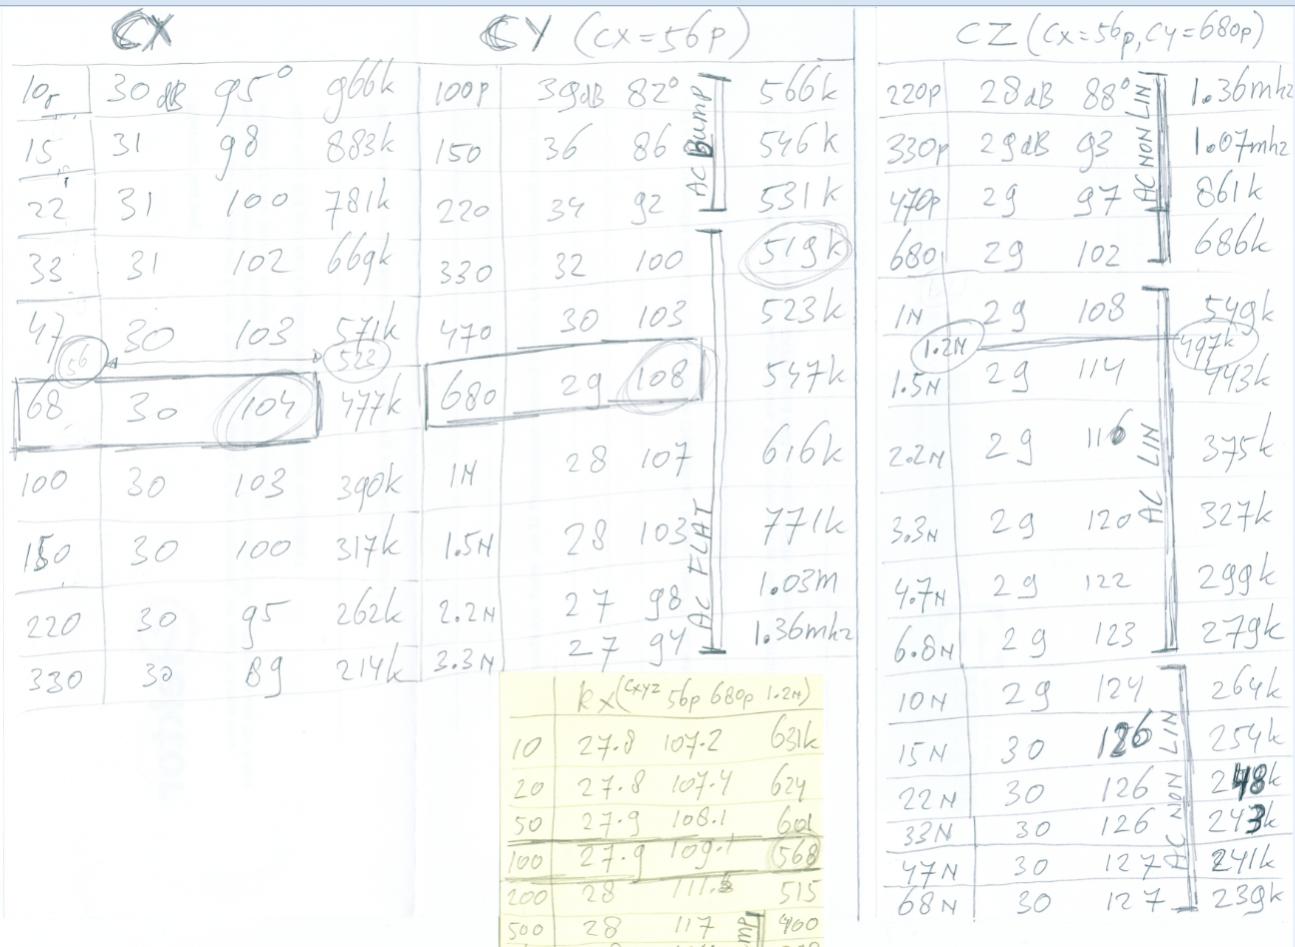 CX
10p 30dB 95° 966k
15 31 98 883k
22 31 100 781k
33 31 102 669k
47 30 103 571k
56 523
68 30 104 477k
100 30 103 390k
150 30 100 317k
220 30 95 262k
330 30 89 214k
CY (CX=56p)
100p 39dB 82° 566k
150 36 86 546k
220 34 92 531k
AC Bump
330 32 100 519k
470 30 103 523k
680 29 108 547k
1N 28 107 616k
1.5N 28 103 771k
2.2N 27 98 1.03m
3.3N 27 94 1.36mhz
AC FLAT
Rx (Cxyz 56p 680p 1.2N)
10 27.8 107.2 631k
20 27.8 107.4 624
50 27.9 108.1 601
100 27.9 109.1 568
200 28 515
500 28 117 400
CZ (Cx=56p, Cy=680p)
220p 28dB 88° 1.36mhz
330p 29dB 93 1.07mhz
470p 29 97 861k
680 29 102 686k
AC NON LIN
1N 29 108 549k
1.2N 497k
1.5N 29 114 443k
2.2N 29 116 375k
3.3N 29 120 327k
4.7N 29 122 299k
6.8N 29 123 279k
AC LIN
10N 29 124 264k
15N 30 126 254k
22N 30 126 248k
33N 30 126 243k
47N 30 127 241k
68N 30 127 239k
AC NON LIN